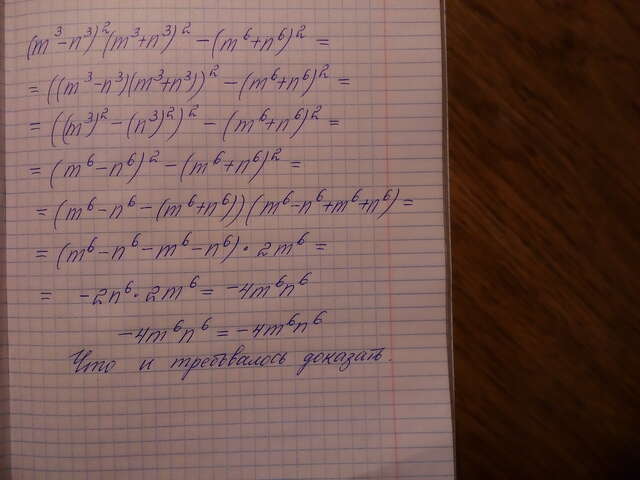 (m³-n³)²(m³+n³)² - (m⁶+n⁶)² =
= ((m³-n³)(m³+n³))² - (m⁶+n⁶)² =
= ((m³)² - (n³)²)² - (m⁶+n⁶)² =
= (m⁶-n⁶)² - (m⁶+n⁶)² =
= (m⁶-n⁶-(m⁶+n⁶))(m⁶-n⁶+m⁶+n⁶) =
= (m⁶-n⁶-m⁶-n⁶)·2m⁶ =
= -2n⁶·2m⁶ = -4m⁶n⁶
-4m⁶n⁶ = -4m⁶n⁶
Что и требовалось доказать.